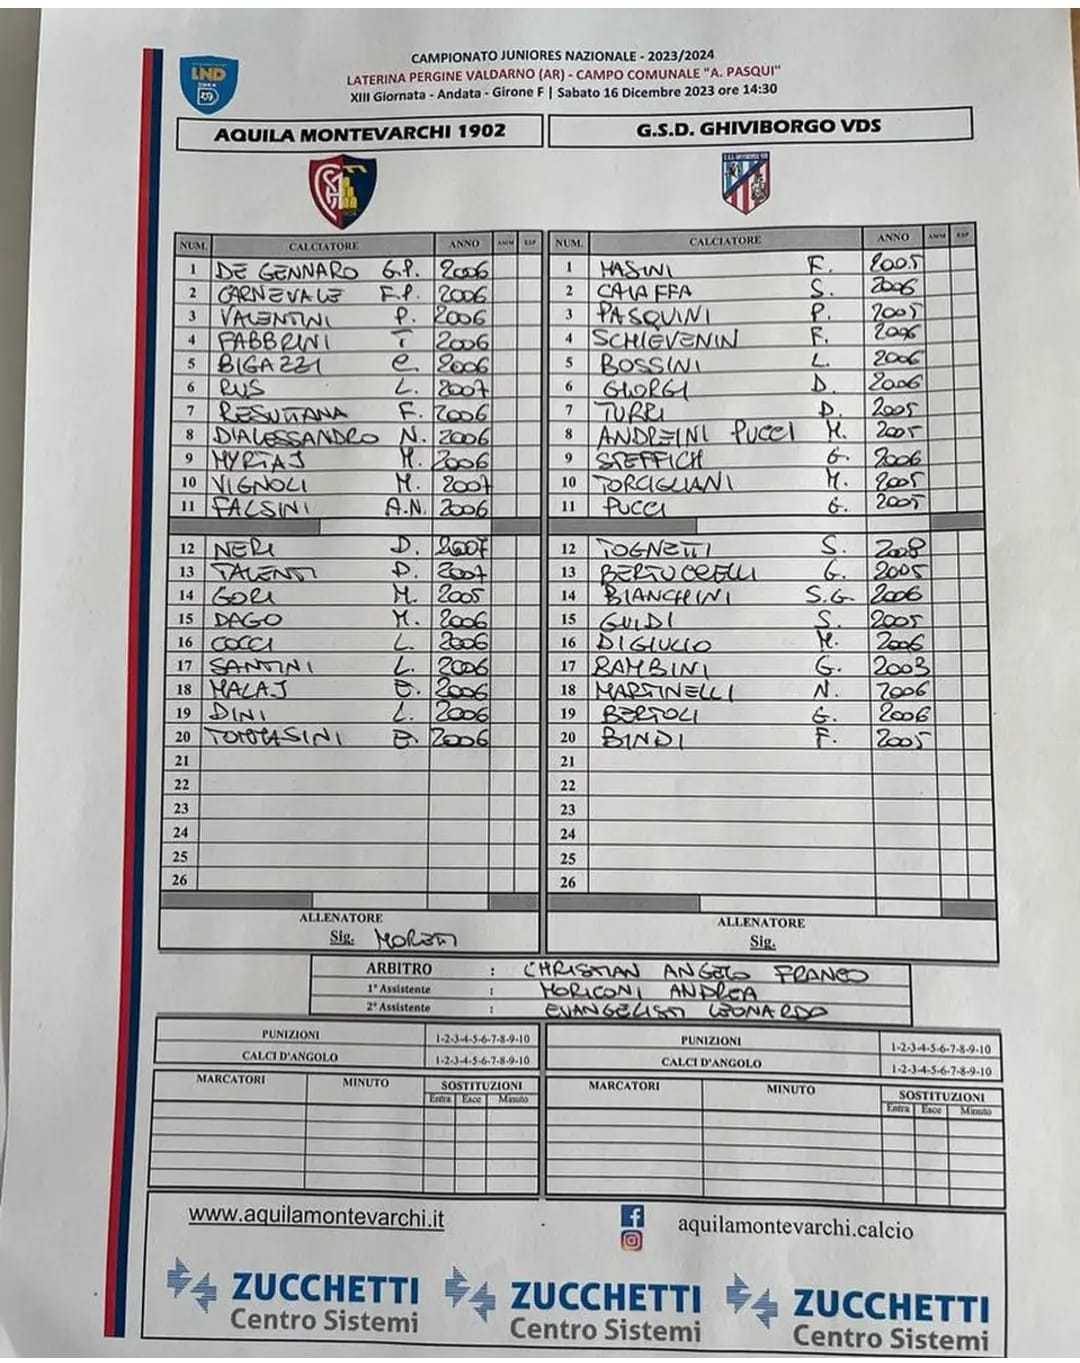 LND
CAMPIONATO JUNIORES NAZIONALE - 2023/2024
LATERINA PERGINE VALDARNO (AR) - CAMPO COMUNALE "A. PASQUI"
XIII Giornata - Andata - Girone F | Sabato 16 Dicembre 2023 ore 14:30
AQUILA MONTEVARCHI 1902
G.S.D. GHIVIBORGO VDS
NUM. CALCIATORE ANNO AMM ESP
1 DE GENNARO G.P. 2006
2 CARNEVALE F.P. 2006
3 VALENTINI P. 2006
4 FABBRINI T 2006
5 BIGAZZI C. 2006
6 RUS L. 2007
7 RESUTTANA F. 2006
8 DIALESSANDRO N. 2006
9 MYRTAJ M. 2006
10 VIGNOLI M. 2007
11 FALSINI A.N. 2006
12 NERI D. 2007
13 TALENTI D. 2007
14 GORI M. 2005
15 DAGO M. 2006
16 COCCI L. 2006
17 SANTINI L. 2006
18 MALAJ E. 2006
19 DINI L. 2006
20 TOMMASINI E. 2006
21
22
23
24
25
26
ALLENATORE
Sig. MORETTI
NUM. CALCIATORE ANNO AMM ESP
1 MASINI F. 2005
2 CAIAFFA S. 2006
3 PASQUINI P. 2005
4 SCHIEVENIN F. 2006
5 BOSSINI L. 2006
6 GIORGI D. 2006
7 TURRI D. 2005
8 ANDREINI PUCCI M. 2005
9 STEFFICH G. 2006
10 TORCIGLIANI M. 2005
11 PUCCI G. 2005
12 TOGNETTI S. 2008
13 BERTUCCELLI G. 2005
14 BIANCHINI S.G. 2006
15 GUIDI S. 2005
16 DI GIULIO M. 2006
17 BAMBINI G. 2003
18 MARTINELLI N. 2006
19 BERTOLI G. 2006
20 BINDI F. 2005
21
22
23
24
25
26
ALLENATORE
Sig.
ARBITRO : CHRISTIAN ANGELO FRANCO
1° Assistente : MORICONI ANDREA
2° Assistente : EVANGELISTI LEONARDO
PUNIZIONI 1-2-3-4-5-6-7-8-9-10
CALCI D'ANGOLO 1-2-3-4-5-6-7-8-9-10
MARCATORI MINUTO SOSTITUZIONI
Entra Esce Minuto
PUNIZIONI 1-2-3-4-5-6-7-8-9-10
CALCI D'ANGOLO 1-2-3-4-5-6-7-8-9-10
MARCATORI MINUTO SOSTITUZIONI
Entra Esce Minuto
www.aquilamontevarchi.it
aquilamontevarchi.calcio
ZUCCHETTI
Centro Sistemi
ZUCCHETTI
Centro Sistemi
ZUCCHETTI
Centro Sistemi